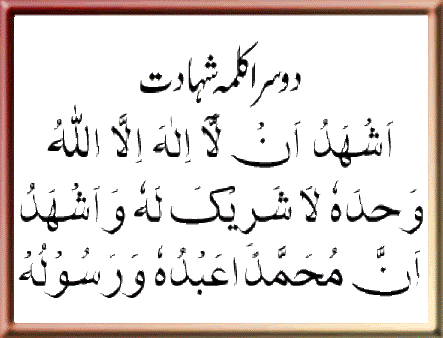 دوسرا کلمہ شہادت
اَشْهَدُ اَنْ لَّآ اِلٰهَ اِلَّا اللّٰهُ
وَحْدَهٗ لَا شَرِيْكَ لَهٗ وَاَشْهَدُ
اَنَّ مُحَمَّدًا عَبْدُهٗ وَرَسُوْلُهٗ